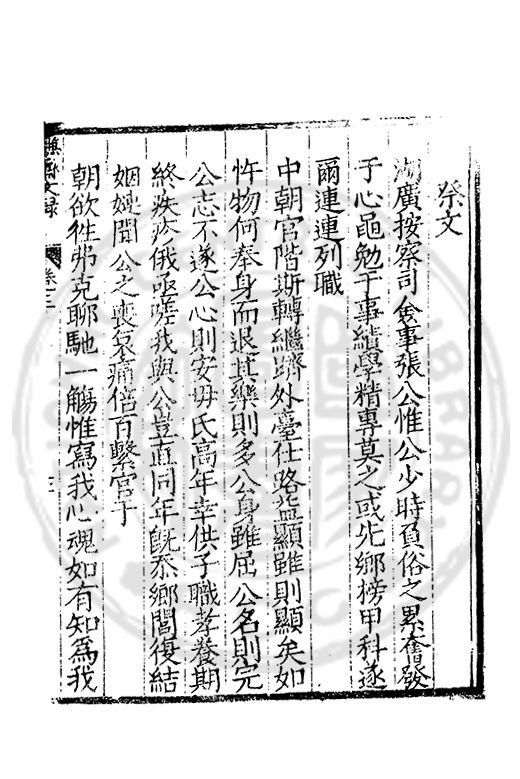 祭文
湖廣按察司僉事張公惟公少時負俗之累奮發
于心黽勉干事績學精專莫之或先鄉榜甲科遂
爾連連列職
中朝官階斯轉繼躋外臺仕路益顯雖則顯矣如
忤物何奉身而退其樂則多公身雖屈公名則完
公志不遂公心則安毋氏高年幸供子職孝養期
終疾疹俄亟嗟我與公豈直同年旣忝鄉閭復結
姻婭聞公之喪哀痛倍百繫官于
朝欲徃弗克聊馳一觴惟寫我心魂如有知為我
文録 卷三